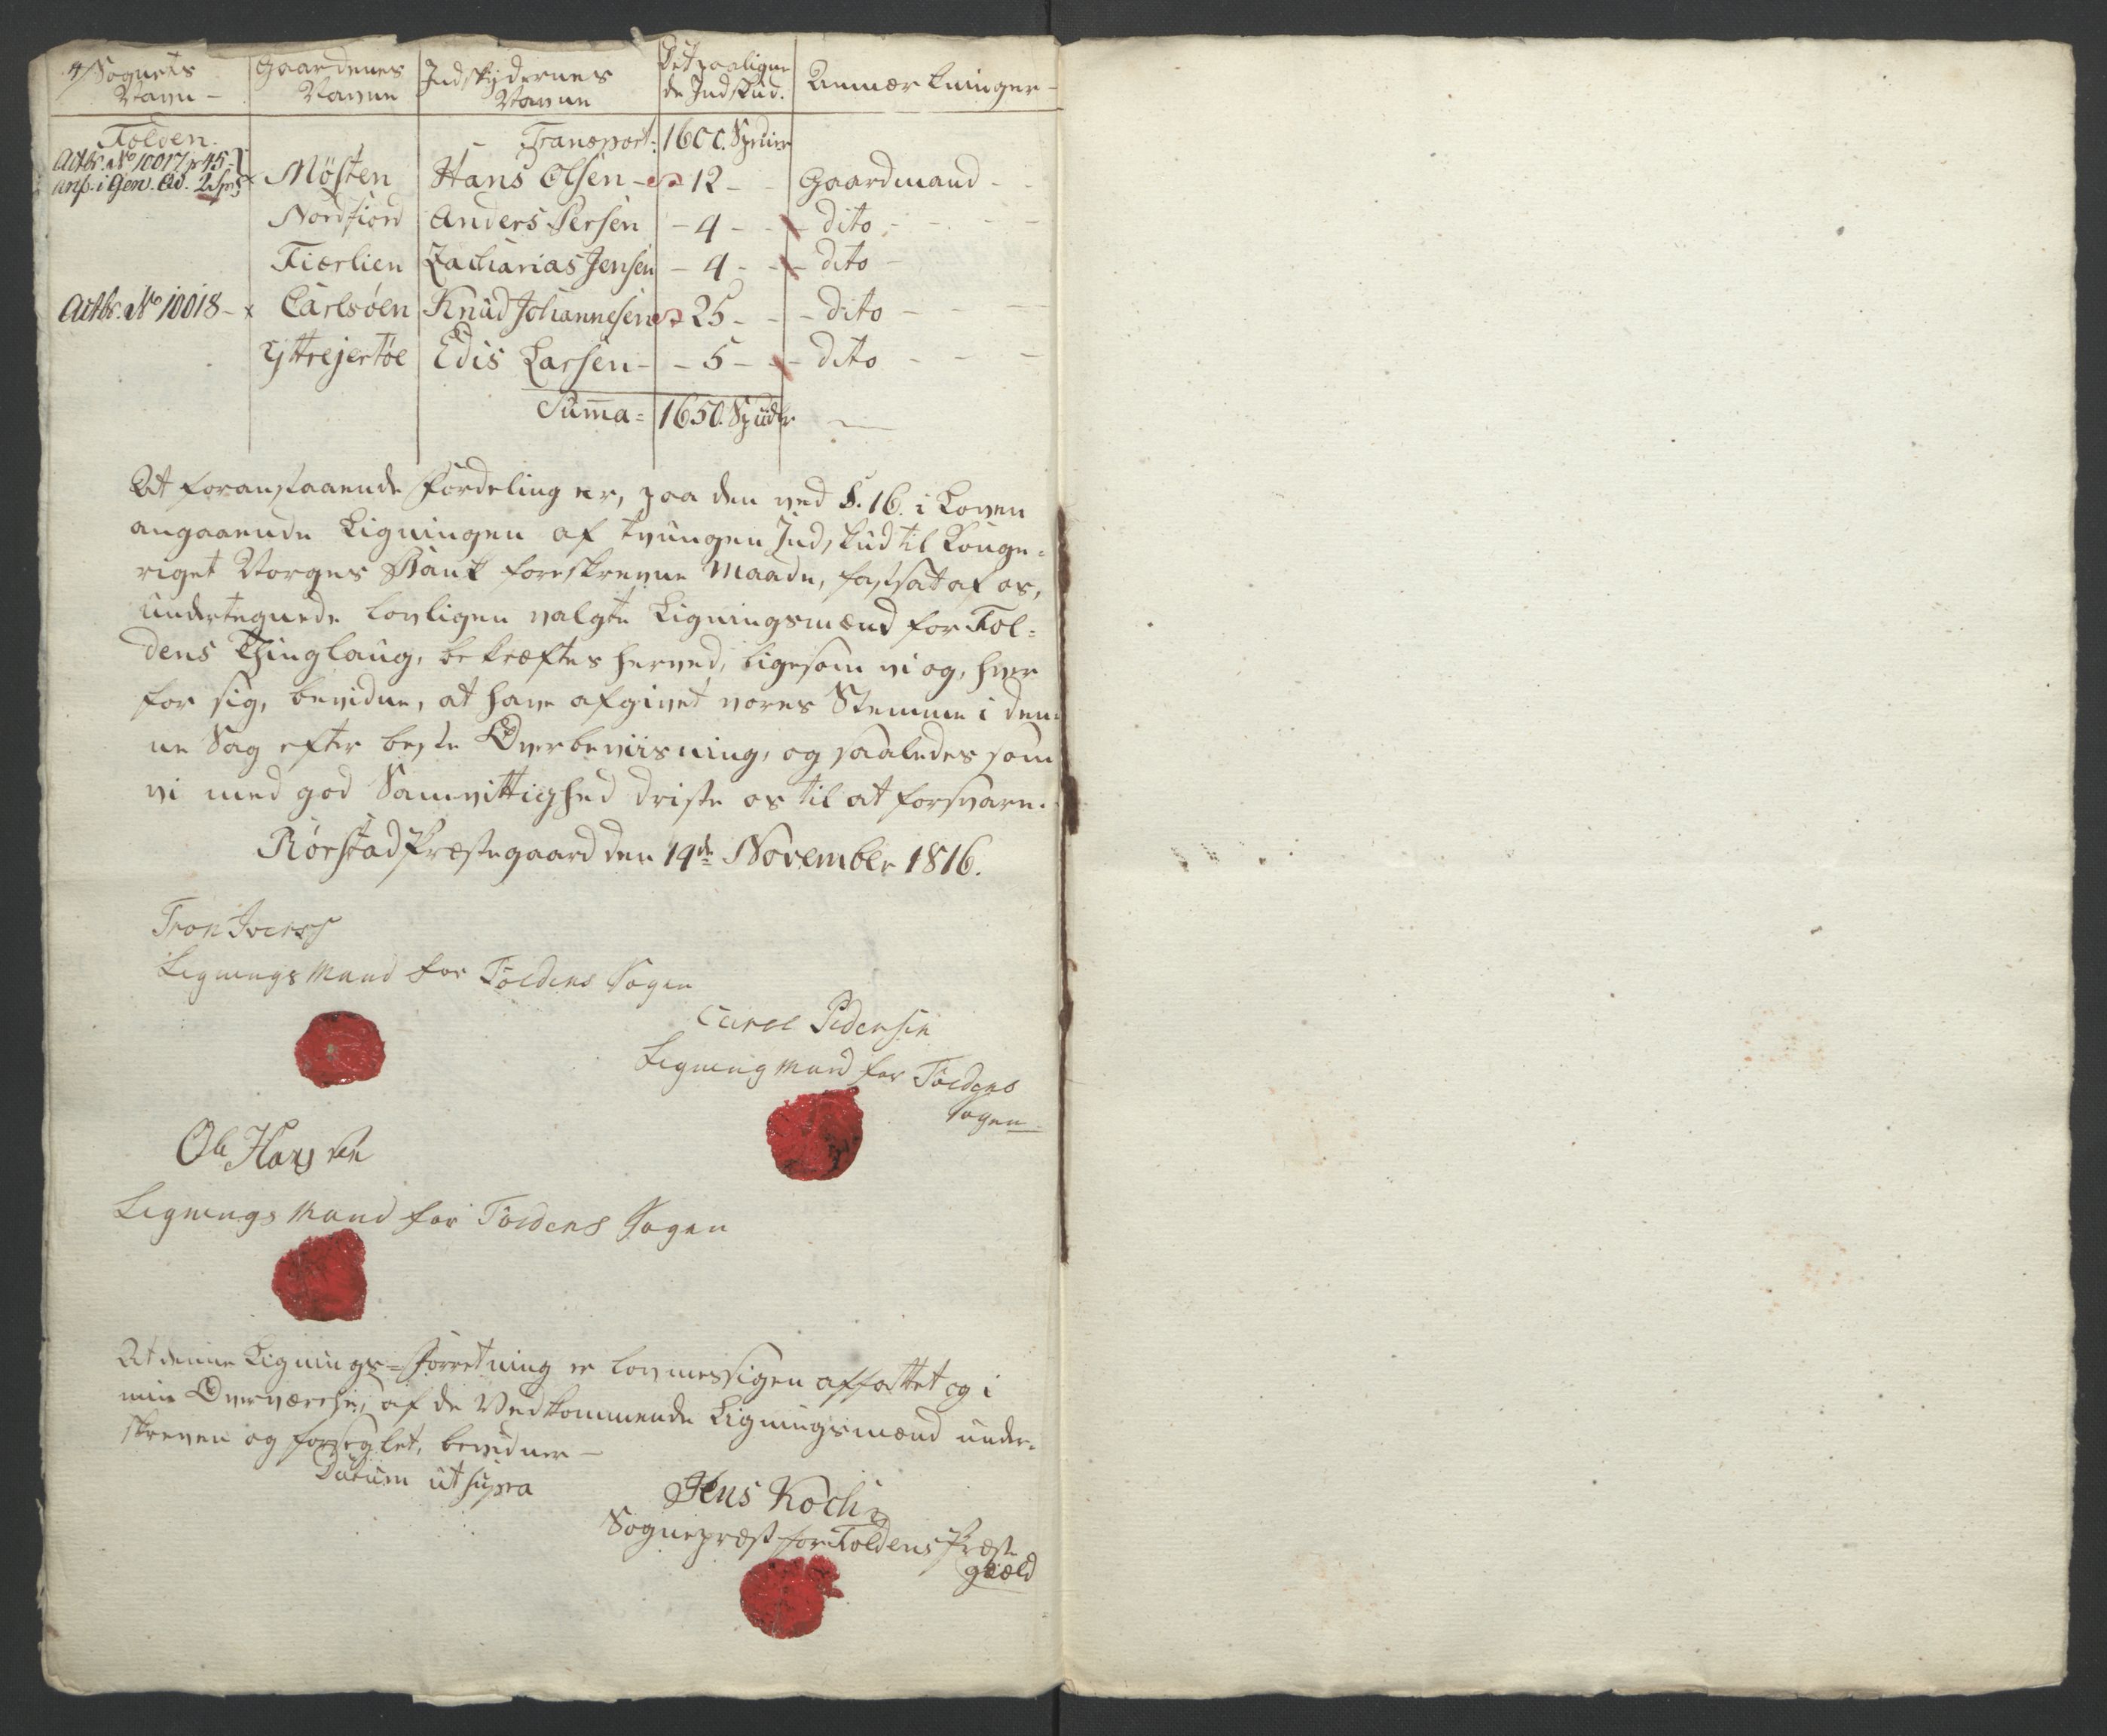 Sognets Navn – Gaardenes Navne Indskydernes Navne Det paalignede Indskud. Anmærkninger –
Folden. Transport: 1600. Spdlr
Actbr. No 10017 p 45
anf. i Gen. Qv. 2 Spd x Møsten Hans Olsen – 12 – Gaardmand –
Nordfiord Anders Persen – 4 – dito –
Fierlien Zacharias Jensen – 4 – dito –
Actbr. No 10018 – x Carlsøen Knud Johannesen 25 – dito –
Yttrejertøe Edis Larsen – 5 – dito –
Summa = 1650. Spdlr
At foranstaaende Fordeling er, paa den ved §. 16. i Loven
angaaende Ligningen af tvungen Indskud til Konge-
riget Norges Bank foreskrevne Maade, fastsat af os,
undertegnede lovligen valgte Ligningsmænd for Fol-
dens Thinglaug, bekræftes herved, ligesom vi og, hver
for sig, bevidne, at have afgivet vores Stemme i den-
ne Sag efter beste Overbeviisning, og saaledes som
vi med god Samvittighed driste os til at forsvare.
Rørstad Præstegaard den 14de November 1816.
Tron Ivers
Lignings Mand for Foldens Sogen
Carel Pedersen
Ligning Mand for Foldens
Sogen
Ole Hansen
Lignings Mand for Foldens Sogen
At denne Lignings-Forretning er lovmessigen affattet og i
min Overværelse, af de Vedkommende Ligningsmænd under-
skreven og forseglet, bevidner –
Datum ut supra
Jens Koch
Sognepræst for Foldens Præste
gield